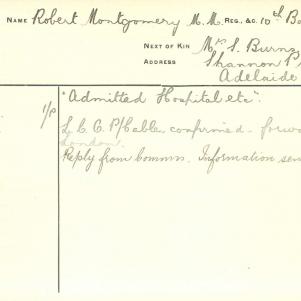 NAME Robert Montgomery M.M. REG., &C. 10th B
NEXT OF KIN Mrs S. Burns
ADDRESS Shannon P
Adelaide
1/P "Admitted Hospital etc".
L.C.C. P/Cable confirmed - forw
London.
Reply from Commrs. Information sen